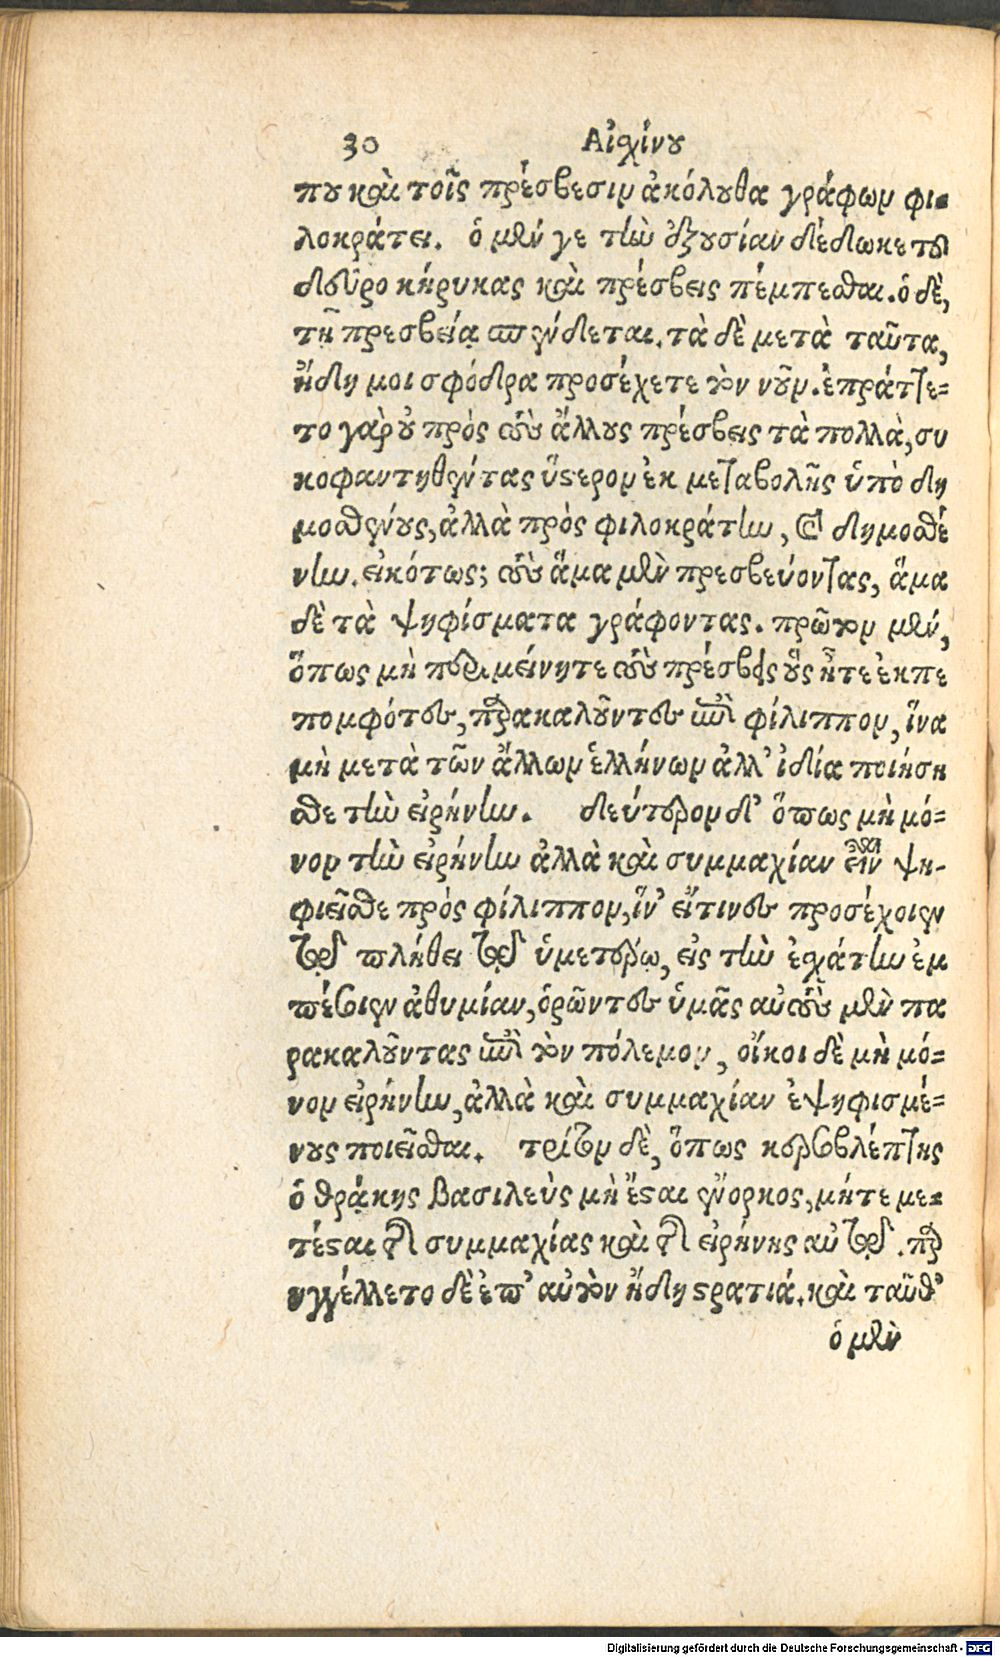 30 Αἰχίνου
που καὶ τοῖς πρέσβεσιν ἀκόλουθα γράφων φι-
λοκράτει. ὁ μέν γε τὴν ἐξουσίαν δέδωκε τοῦ
δεῦρο κήρυκας καὶ πρέσβεις πέμπεσθαι. ὁ δὲ,
τῇ πρεσβείᾳ σπένδεται. τὰ δὲ μετὰ ταῦτα,
ἤδη μοι σφόδρα προσέχετε τὸν νοῦν. ἐπράττε-
το γὰρ οὐ πρὸς τοὺς ἄλλους πρέσβεις τὰ πολλὰ, συ
κοφαντηθέντας ὕστερον ἐκ μεταβολῆς ὑπὸ δη
μοσθένους, ἀλλὰ πρὸς φιλοκράτην, καὶ δημοσθέ
νην. εἰκότως; τοὺς ἅμα μὲν πρεσβεύοντας, ἅμα
δὲ τὰ ψηφίσματα γράφοντας. πρῶτον μέν,
ὅπως μὴ περιμείνητε τοὺς πρέσβεις οὓς ἦτε ἐκπε
πομφότες, παρακαλοῦντες ἐπὶ φίλιππον, ἵνα
μὴ μετὰ τῶν ἄλλων ἑλλήνων ἀλλ' ἰδία ποιήση
σθε τὴν εἰρήνην. δεύτερον δ' ὅπως μὴ μό-
νον τὴν εἰρήνην ἀλλὰ καὶ συμμαχίαν εἶναι ψη-
φιεῖσθε πρὸς φίλιππον, ἵν' εἴτινες προσέχοιεν
τῷ πλήθει τῷ ὑμετέρῳ, εἰς τὴν ἐχάτην ἐμ
πέσοιεν ἀθυμίαν, ὁρῶντες ὑμᾶς αὐτοὺς μὲν πα
ρακαλοῦντας ἐπὶ τὸν πόλεμον, οἴκοι δὲ μὴ μό-
νον εἰρήνην, ἀλλὰ καὶ συμμαχίαν ἐψηφισμέ-
νους ποιεῖσθαι. τρίτον δὲ, ὅπως κερσοβλέπτης
ὁ θράκης βασιλεὺς μὴ ἔσται ἔνορκος, μήτε με-
τέσται τῆς συμμαχίας καὶ τῆς εἰρήνης αὐτῷ. παρ
ηγγέλλετο δὲ ἐπ' αὐτὸν ἤδη στρατιά. καὶ ταῦθ'
ὁ μὲν
Digitalisierung gefördert durch die Deutsche Forschungsgemeinschaft - DFG